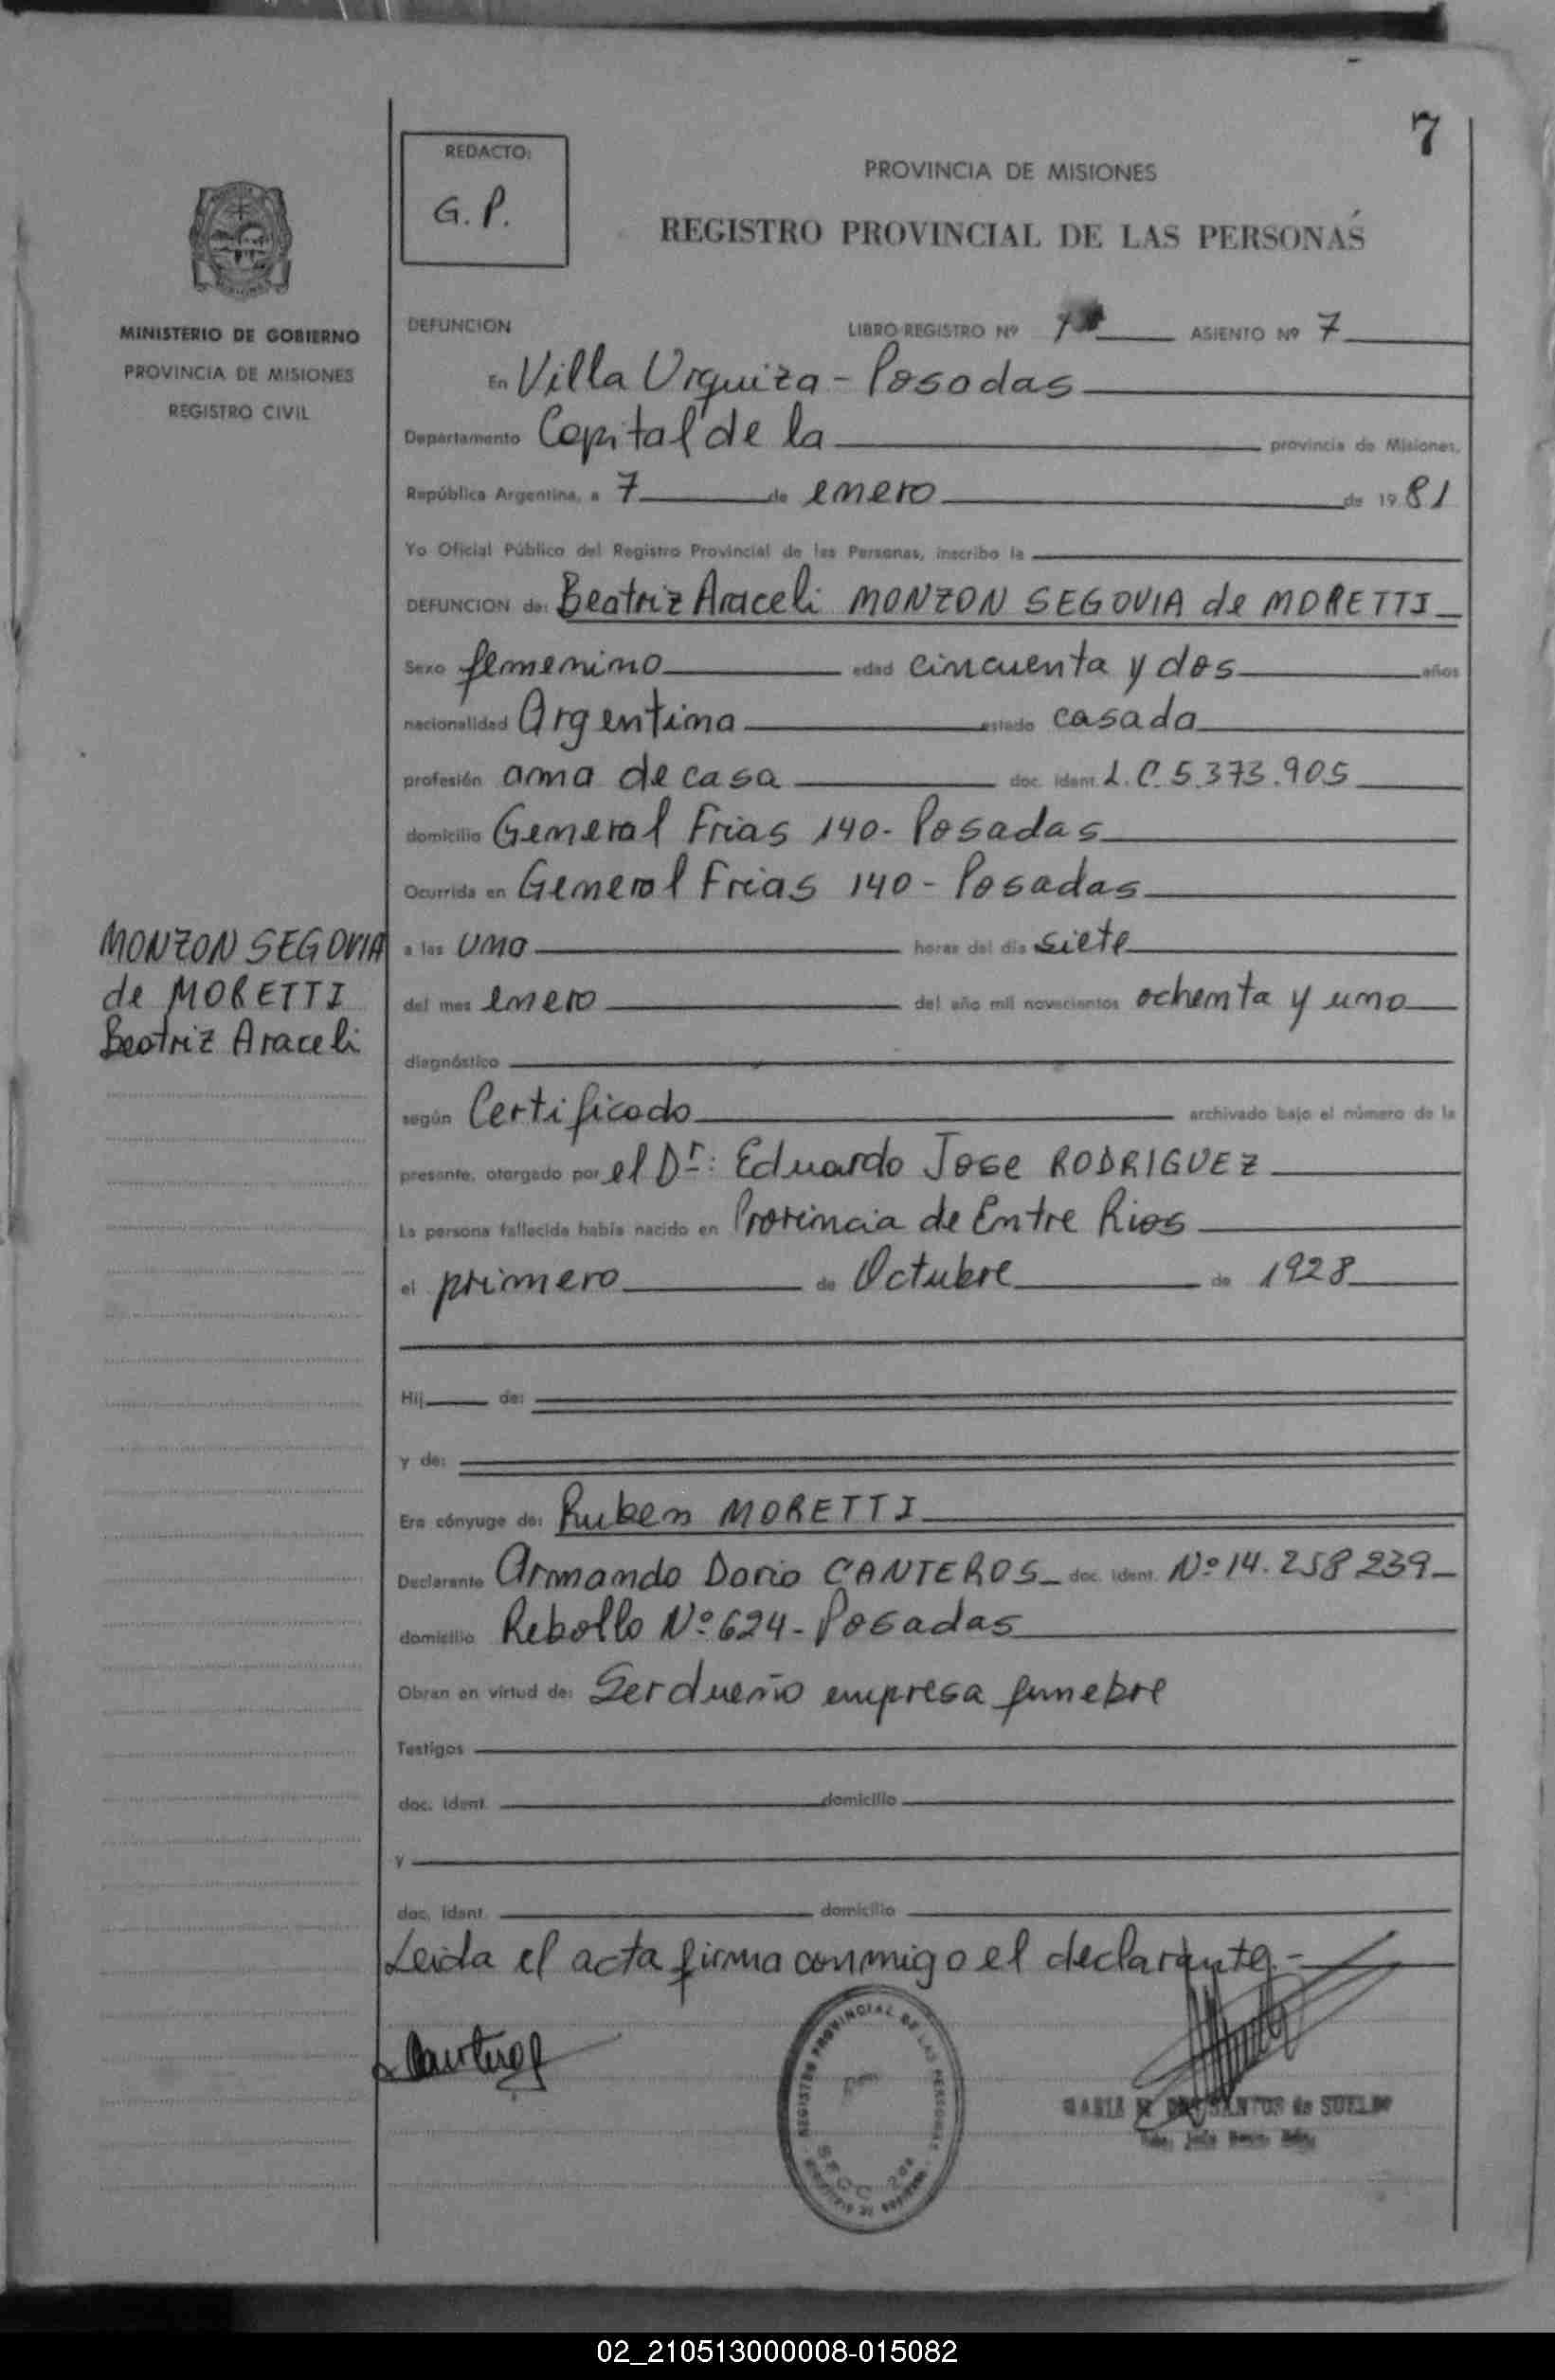 7
REDACTO:
G. P.
PROVINCIA DE MISIONES
REGISTRO PROVINCIAL DE LAS PERSONAS
MINISTERIO DE GOBIERNO
PROVINCIA DE MISIONES
REGISTRO CIVIL
DEFUNCION LIBRO REGISTRO Nº ASIENTO Nº 7
En Villa Urquiza - Posadas
Departamento Capital de la provincia de Misiones,
República Argentina, a 7 de enero de 1981
Yo Oficial Público del Registro Provincial de las Personas, inscribo la
DEFUNCION de: Beatriz Araceli MONZON SEGOVIA de MORETTI
Sexo femenino edad cincuenta y dos años
nacionalidad Argentina estado casada
profesión ama de casa doc. ident. L.C. 5.373.905
domicilio General Frias 140 - Posadas
Ocurrida en General Frias 140 - Posadas
MONZON SEGOVIA
de MORETTI
Beatriz Araceli
a las una horas del día siete
del mes enero del año mil novecientos ochenta y uno
diagnóstico
según Certificado archivado bajo el número de la
presente, otorgado por el Dr: Eduardo Jose RODRIGUEZ
La persona fallecida había nacido en Provincia de Entre Rios
el primero de Octubre de 1928
Hij de:
y de:
Era cónyuge de: Ruben MORETTI
Declarante Armando Dario CANTEROS doc. ident. Nº 14.258 239
domicilio Rebollo Nº 624 - Posadas
Obran en virtud de: Ser dueño empresa funebre
Testigos
doc. ident. domicilio
y
doc. ident. domicilio
Leida el acta firma conmigo el declarante.-
REGISTRO PROVINCIAL DE LAS PERSONAS
SANTOS de SUELDO
02_210513000008-015082